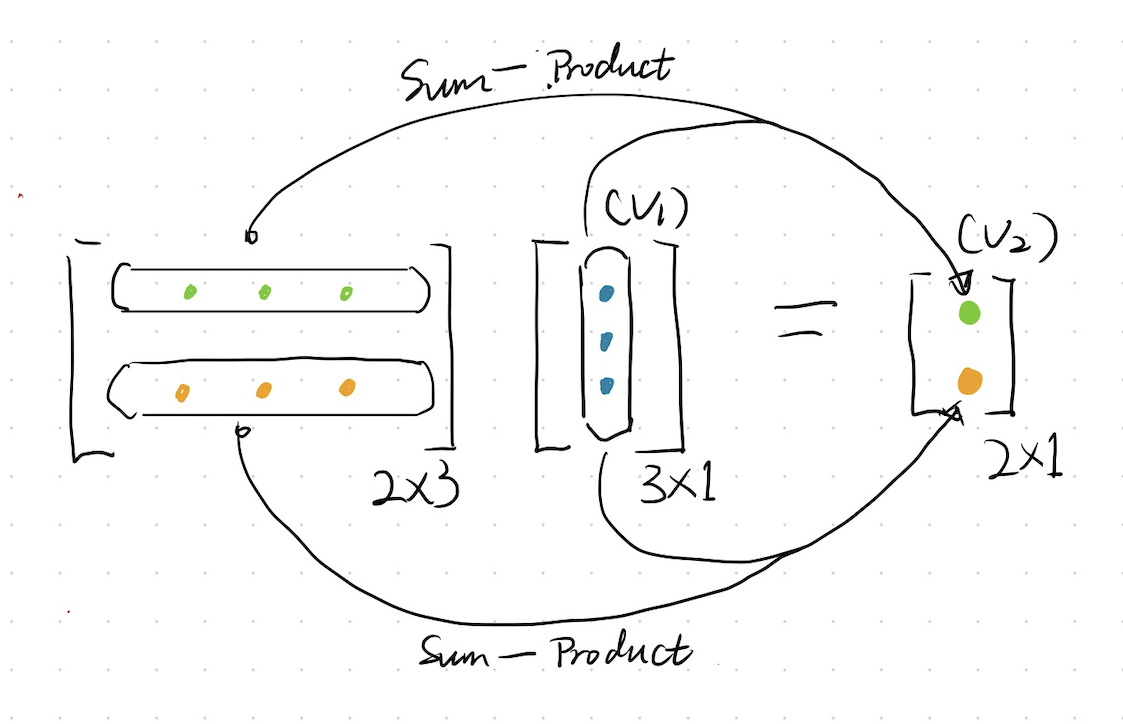 Sum – Product
(V₁)
(V₂)
=
2×3
3×1
2×1
Sum – Product